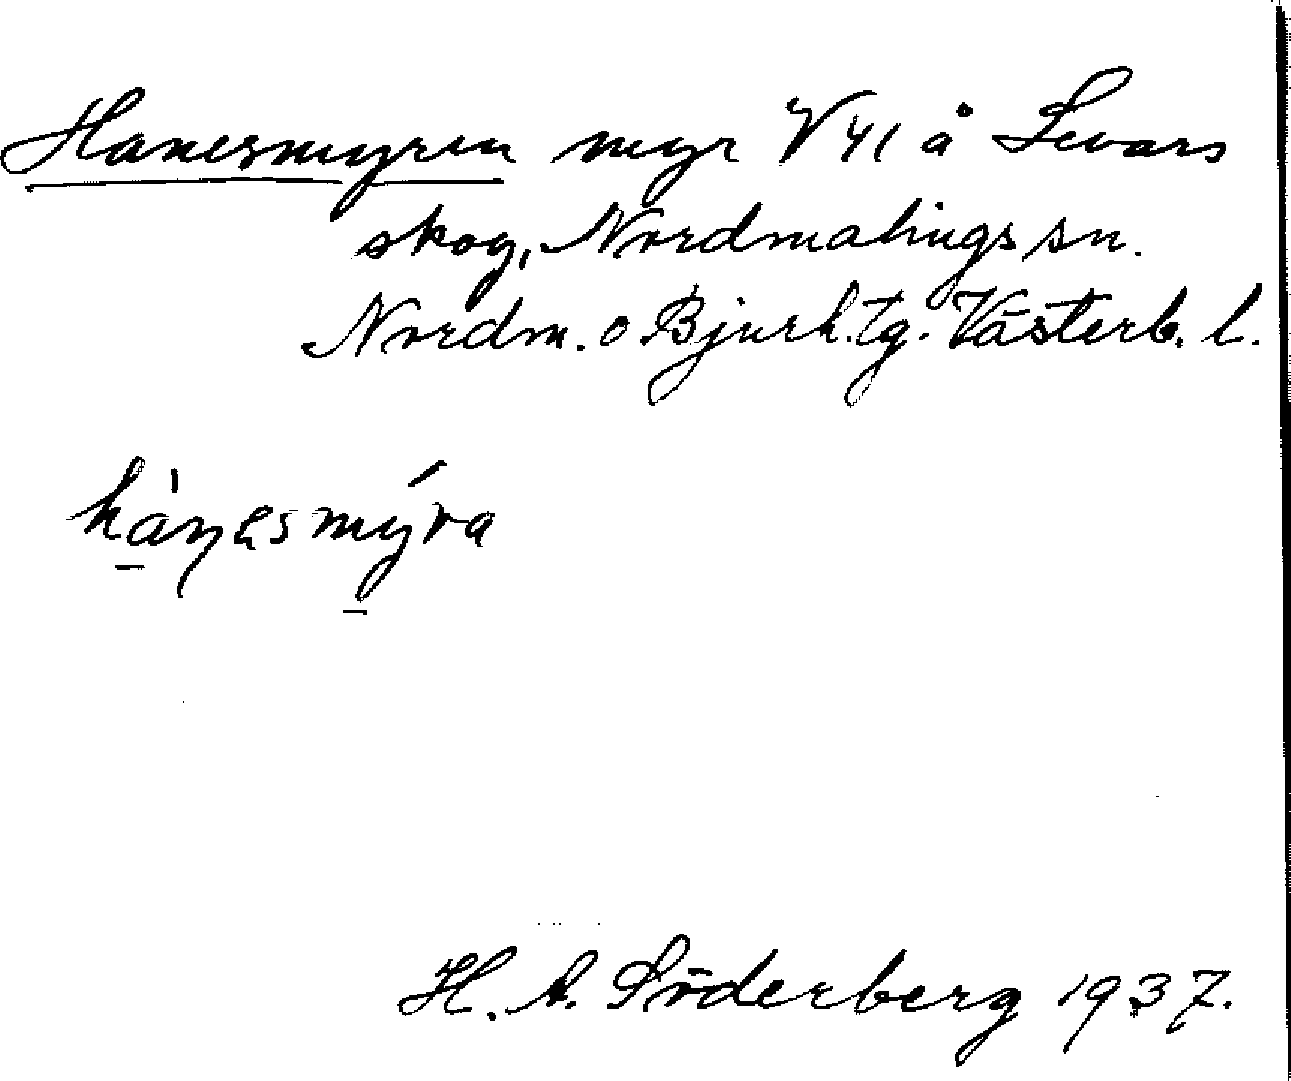 Hanesmyren myr V 41 å Levars
skog, Nordmalings sn.
Nordm. o Bjurh. tg. Västerb. l.
hàŋesmýra
H. A. Söderberg 1937.